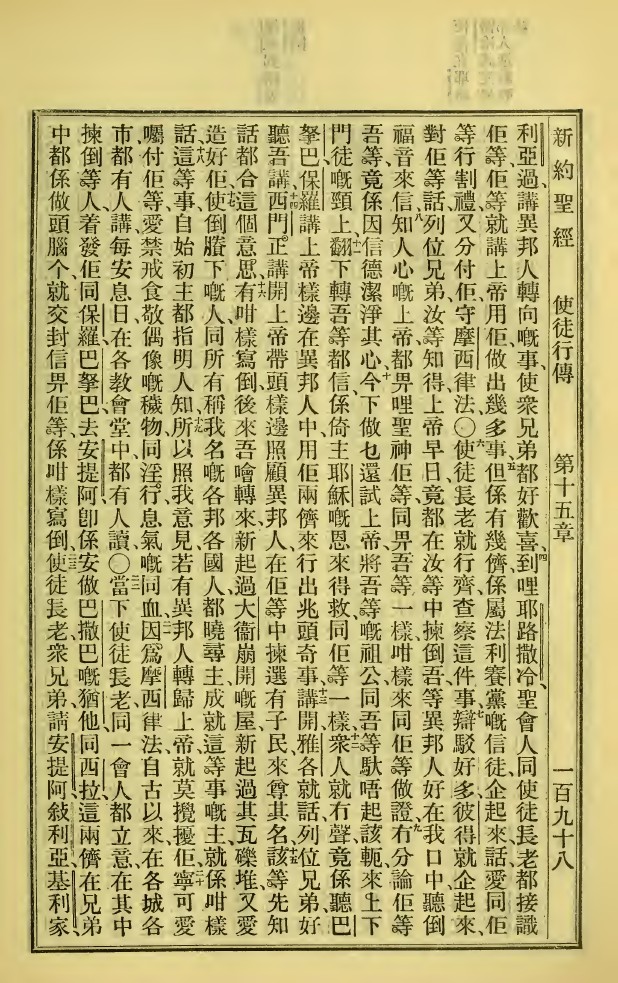 新約聖經 使徒行傳 第十五章 一百九十八
利亞、過講異邦人轉向嘅事、使衆兄弟都好歡喜、四到哩耶路撒冷、聖會人同使徒長老都接識
佢等、佢等就講上帝用佢做出幾多事、五但係有幾儕係屬法利賽黨嘅信徒企起來話、愛同佢
等行割禮、又分付佢守摩西律法、〇六使徒長老就行齊查察這件事、七辯駁好多、彼得就企起來、
對佢等話、列位兄弟、汝等知得上帝早日竟都在汝等中揀倒吾等異邦人好在我口中聽倒
福音來信、八知人心嘅上帝、都畀哩聖神佢等、同畀吾等一樣、咁樣來同佢等做證、九冇分論佢等
吾等、竟係因信德潔淨其心、十今下做乜還試上帝、將吾等嘅祖公同吾等馱唔起該軛、來上下
門徒嘅頸上、十一翻下轉吾等都信係倚主耶穌嘅恩來得救、同佢等一樣、十二衆人就冇聲、竟係聽巴
拏巴保羅講上帝樣邊在異邦人中用佢兩儕來行出兆頭奇事、十三講開、雅各就話、列位兄弟、好
聽吾講、十四西門正講開上帝帶頭樣邊照顧異邦人、在佢等中揀選有子民來尊其名、十五該等先知
話都合這個意思、有咁樣寫倒、十六後來吾噲轉來、新起過大衞崩開嘅屋、新起過其瓦礫堆、又愛
造好佢、十七使倒賸下嘅人、同所有稱我名嘅各邦各國人都曉尋主、成就這等事嘅主、就係咁樣
話、十八這等事自始初主都指明人知、十九所以照我意見、若有異邦人轉歸上帝、就莫攪擾佢、二十寧可愛
囑付佢等、愛禁戒食敬偶像嘅穢物、同淫行、息氣嘅、同血、二一因爲摩西律法、自古以來、在各城各
市都有人講、每安息日在各教會堂中都有人讀、〇二二當下使徒長老同一會人都立意在其中
揀倒等人着發佢同保羅巴拏巴去安提阿、卽係安做巴撒巴嘅猶他、同西拉、這兩儕在兄弟
中都係做頭腦个、二三就交封信畀佢等、係咁樣寫倒、使徒長老衆兄弟、請安提阿、敍利亞、基利家、